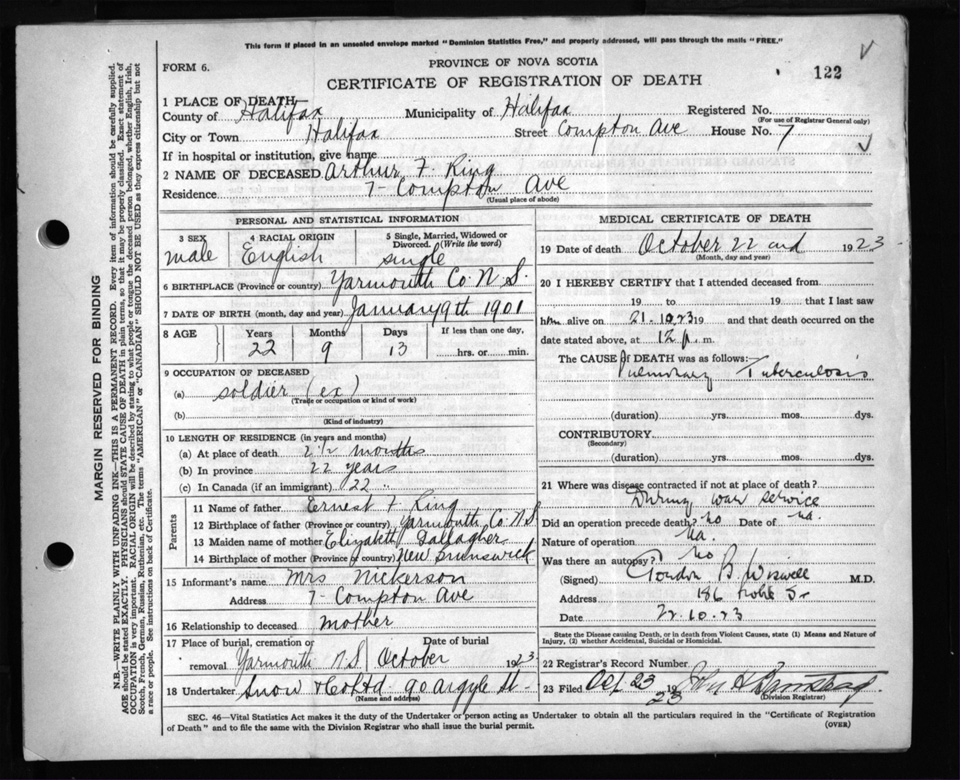 This form if placed in an unsealed envelope marked "Dominion Statistics Free," and properly addressed, will pass through the mails "FREE."
FORM 6.
PROVINCE OF NOVA SCOTIA
CERTIFICATE OF REGISTRATION OF DEATH
122
1 PLACE OF DEATH
County of Halifax Municipality of Halifax Registered No.
(For use of Registrar General only)
City or Town Halifax Street Compton Ave House No. 7
If in hospital or institution, give name
2 NAME OF DECEASED Arthur F. King
Residence 7- Compton Ave
(Usual place of abode)
PERSONAL AND STATISTICAL INFORMATION
3 SEX 4 RACIAL ORIGIN 5 Single, Married, Widowed or Divorced. (Write the word)
male English single
6 BIRTHPLACE (Province or country) Yarmouth Co. N.S.
7 DATE OF BIRTH (month, day and year) January 9th 1901
8 AGE Years Months Days If less than one day,
22 9 13 hrs. or min.
9 OCCUPATION OF DECEASED
(a) soldier (ex)
(Trade or occupation or kind of work)
(b)
(Kind of industry)
10 LENGTH OF RESIDENCE (in years and months)
(a) At place of death 2 1/2 months
(b) In province 22 years
(c) In Canada (if an immigrant) 22 "
Parents
11 Name of father Ernest F King
12 Birthplace of father (Province or country) Yarmouth Co. N.S.
13 Maiden name of mother Elizabeth Gallagher
14 Birthplace of mother (Province or country) New Brunswick
15 Informant's name Mrs Nickerson
Address 7- Compton Ave
16 Relationship to deceased mother
17 Place of burial, cremation or removal Yarmouth N.S. Date of burial October 1923.
18 Undertaker Snow & Co Ltd 90 Argyle St-
(Name and address)
MEDICAL CERTIFICATE OF DEATH
19 Date of death October 22nd 1923
(Month, day and year)
20 I HEREBY CERTIFY that I attended deceased from
19 to 19 that I last saw
him alive on 21.10.23 19 and that death occurred on the
date stated above, at 12 p. m.
The CAUSE OF DEATH was as follows:
Pulmonary Tuberculosis
(duration) yrs. mos. dys.
CONTRIBUTORY
(Secondary)
(duration) yrs. mos. dys.
21 Where was disease contracted if not at place of death?
During war service
Did an operation precede death? no Date of na.
Nature of operation na.
Was there an autopsy? no
(Signed) Gordon B. Wiswell M.D.
Address 186
Date 22.10.23
State the Disease causing Death, or in death from Violent Causes, state (1) Means and Nature of
Injury, (2) whether Accidental, Suicidal or Homicidal.
22 Registrar's Record Number
23 Filed Oct 23 19 23
(Division Registrar)
SEC. 46—Vital Statistics Act makes it the duty of the Undertaker or person acting as Undertaker to obtain all the particulars required in the "Certificate of Registration
of Death" and to file the same with the Division Registrar who shall issue the burial permit.
(OVER)
MARGIN RESERVED FOR BINDING
N.B.—WRITE PLAINLY WITH UNFADING INK—THIS IS A PERMANENT RECORD. Every item of information should be carefully supplied.
AGE should be stated EXACTLY. PHYSICIANS should STATE CAUSE OF DEATH in plain terms, so that it may be properly classified. Exact statement of
OCCUPATION is very important. RACIAL ORIGIN will be described by stating to what people or tongue the deceased person belonged, whether English, Irish,
Scotch, French, German, Russian, Ruthenian, etc. The terms "AMERICAN" or "CANADIAN" SHOULD NOT BE USED as they express citizenship but not
a race or people. See instructions on back of Certificate.